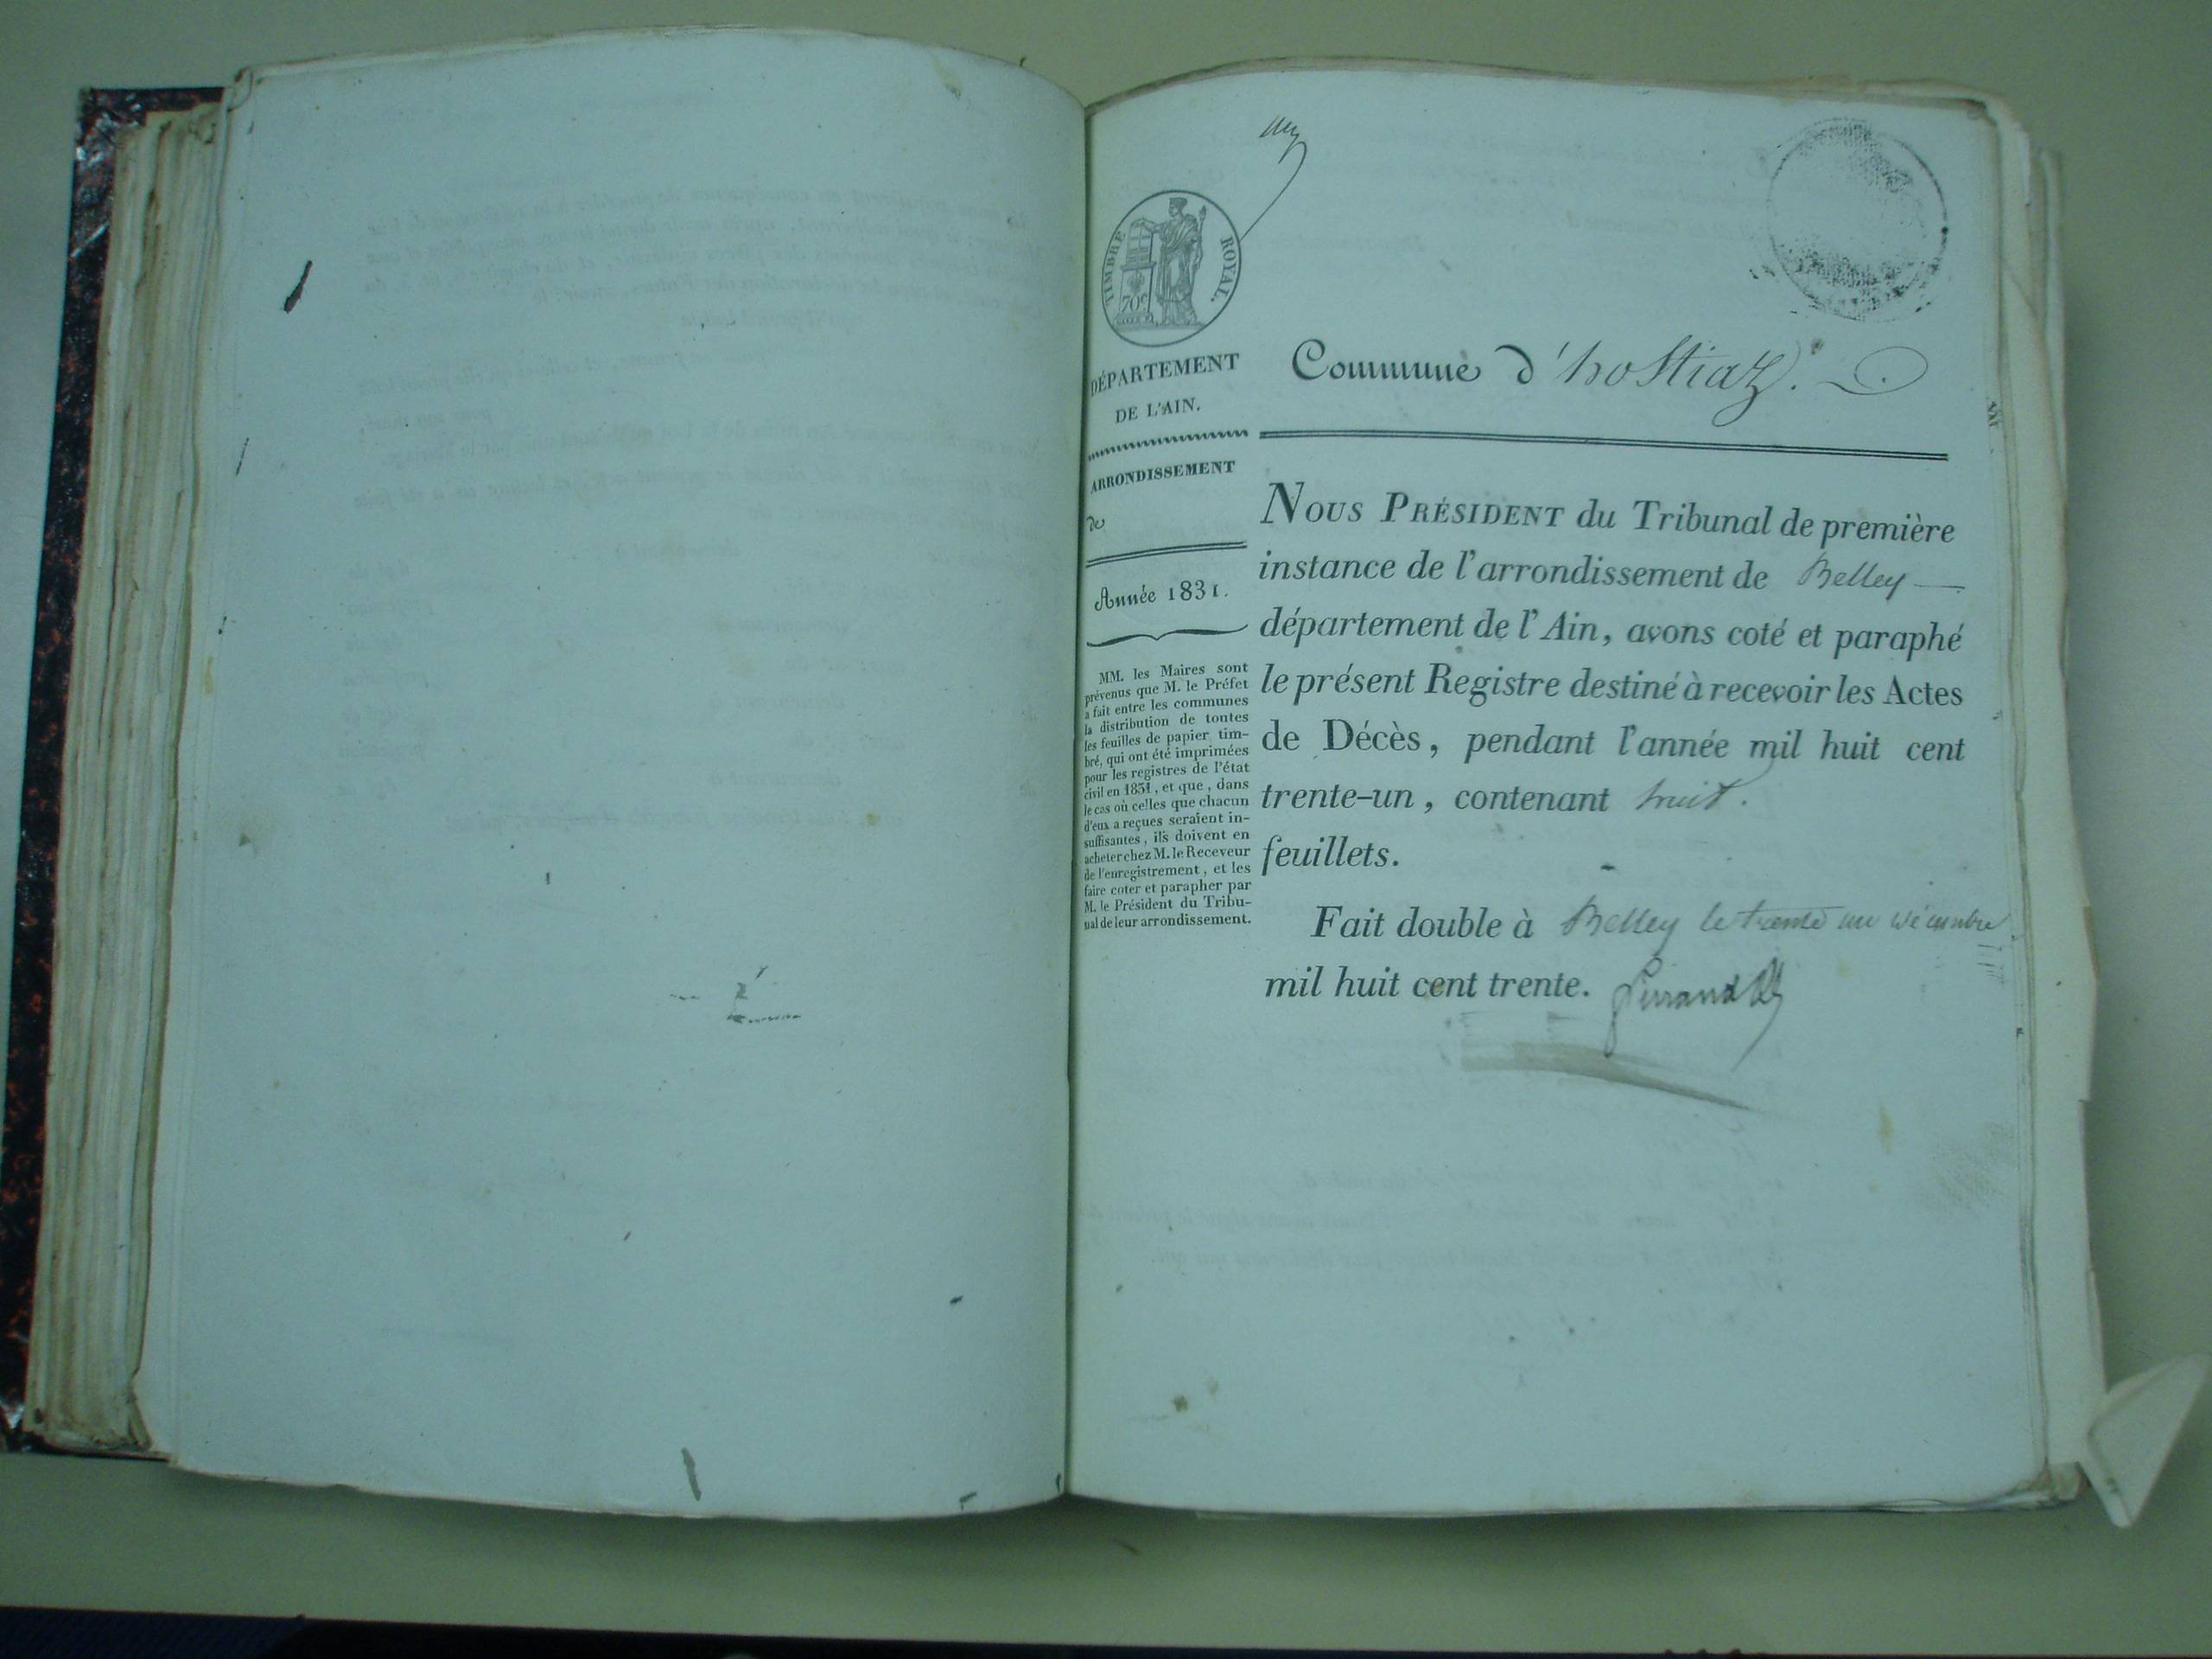 TIMBRE ROYAL.
70c
DÉPARTEMENT
DE L'AIN.
ARRONDISSEMENT
de
Année 1831.
MM. les Maires sont
prévenus que M. le Préfet
a fait entre les communes
la distribution de toutes
les feuilles de papier tim-
bré, qui ont été imprimées
pour les registres de l'état
civil en 1831, et que, dans
le cas où celles que chacun
d'eux a reçues seraient in-
suffisantes, ils doivent en
acheter chez M. le Receveur
de l'enregistrement, et les
faire coter et parapher par
M. le Président du Tribu-
nal de leur arrondissement.
Commune d'hostiaz.
NOUS PRÉSIDENT du Tribunal de première
instance de l'arrondissement de Belley
département de l'Ain, avons coté et paraphé
le présent Registre destiné à recevoir les Actes
de Décès, pendant l'année mil huit cent
trente-un, contenant huit.
feuillets.
Fait double à Belley le trente un décembre
mil huit cent trente.